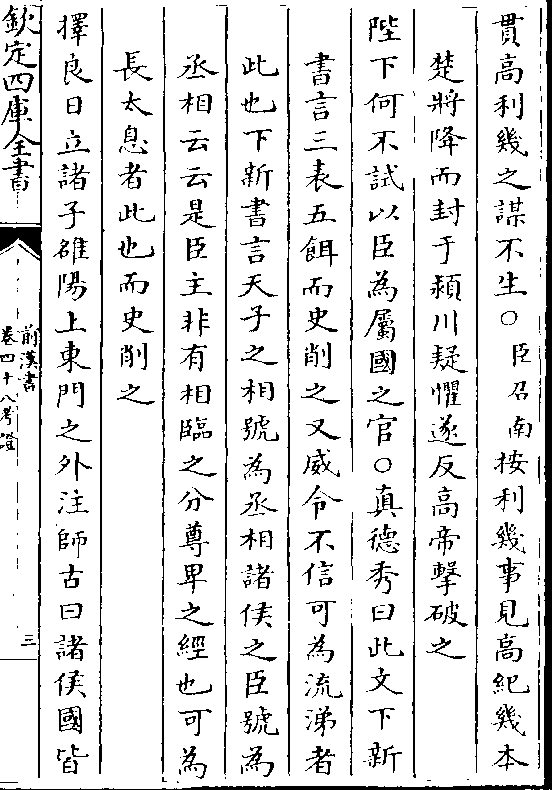 貫高利幾之謀不生○臣召南按利幾事見高紀幾本
楚將降而封于潁川疑懼遂反高帝擊破之
陛下何不試以臣為屬國之官○真德秀曰此文下新
書言三表五餌而史削之又威令不信可為流涕者
此也下新書言天子之相號為丞相諸侯之臣號為
丞相云云是臣主非有相臨之分尊卑之經也可為
長太息者此也而史削之
擇良日立諸子雒陽上東門之外注師古曰諸侯國皆
欽定四庫全書
前漢書
卷四十八考證
三